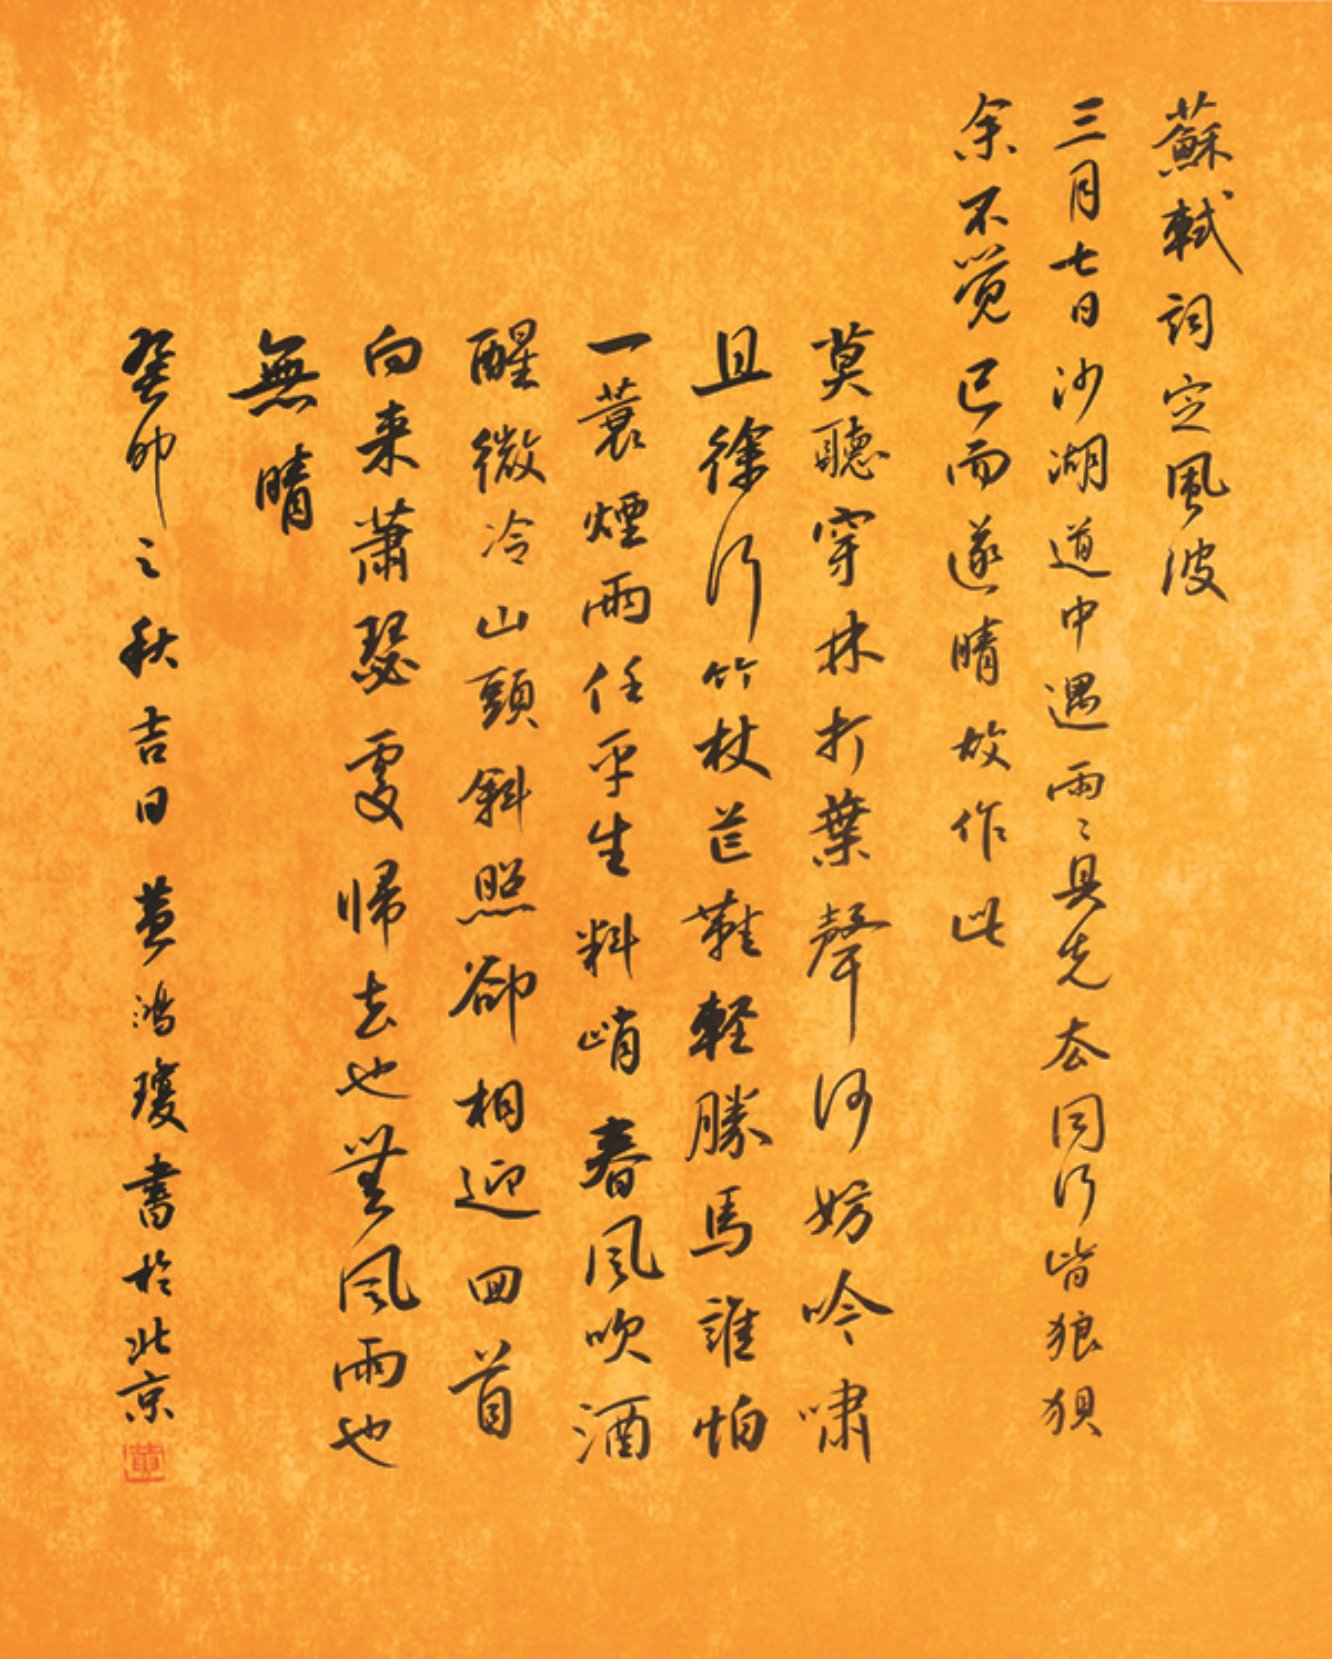 蘇軾詞定風波
三月七日沙湖道中遇雨雨具先去同行皆狼狽
余不覺已而遂晴故作此
莫聽穿林打葉聲何妨吟嘯
且徐行竹杖芒鞋軽勝馬誰怕
一蓑煙雨任平生料峭春風吹酒
醒微冷山頭斜照卻相迎回首
向来蕭瑟處帰去也無風雨也
無晴
癸卯之秋吉日黄鴻瓊書於北京